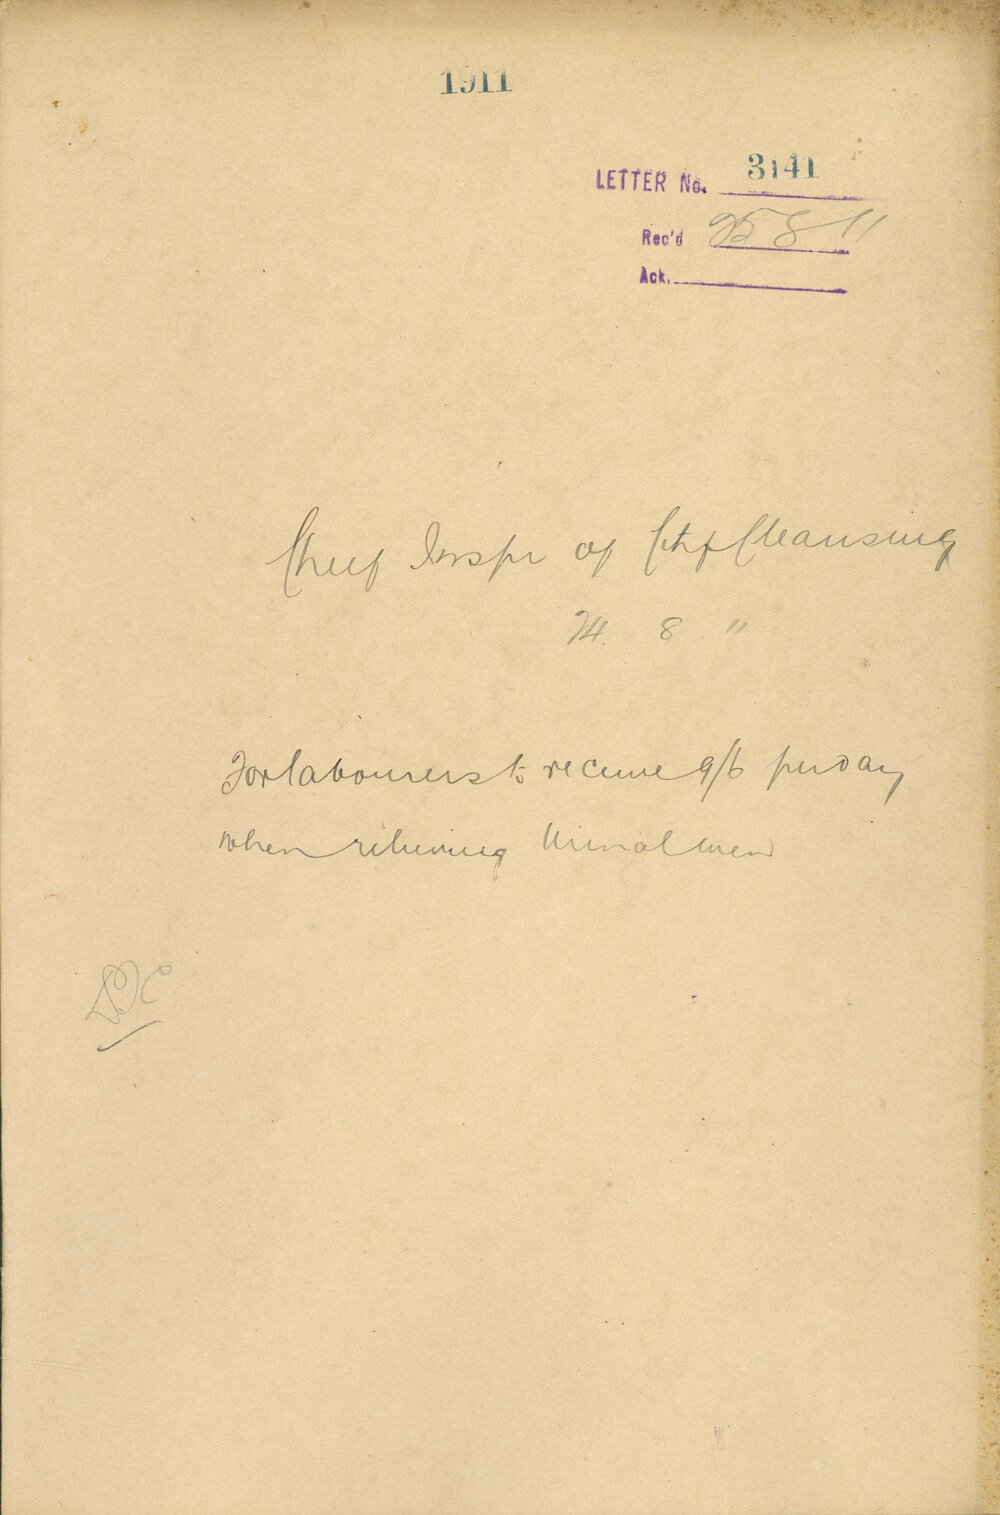 1911
LETTER No. 3141
Rec'd 25 8 11
Ack.
Chief Inspr of City Cleansing
24. 8 11
For labourers to receive 9/6 per day
when relieving Urinal men